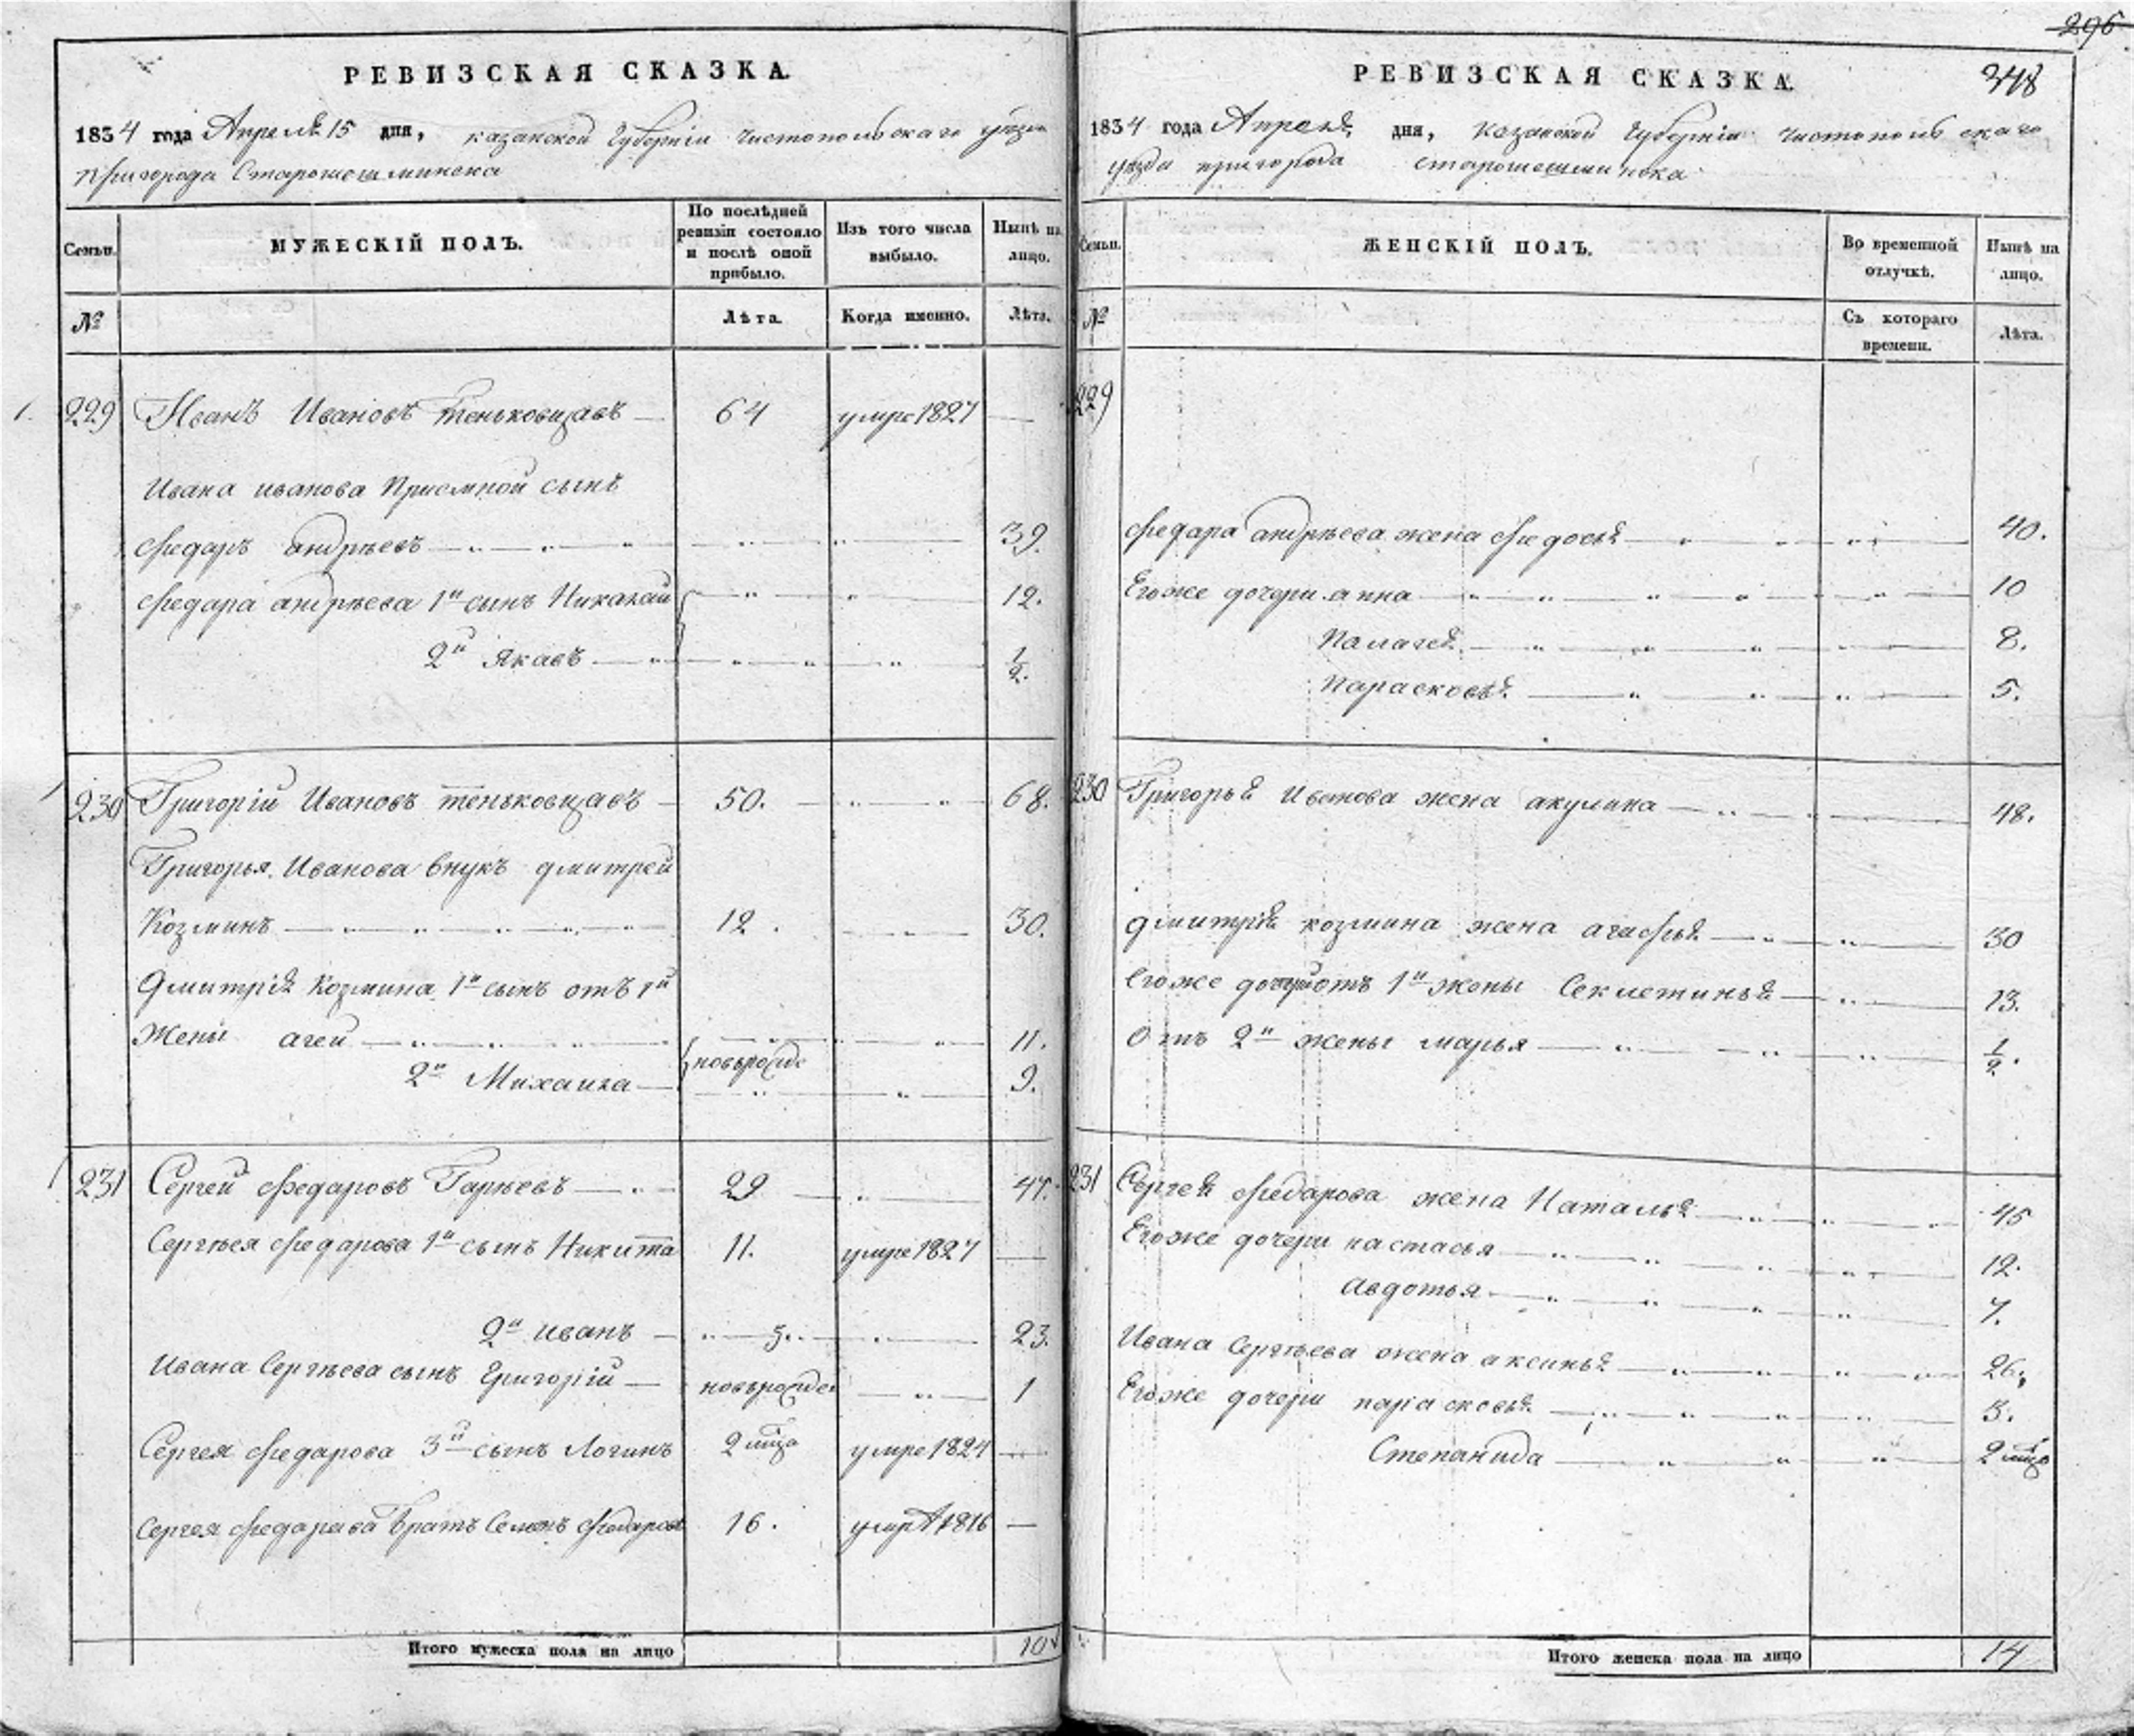 296
РЕВИЗСКАЯ СКАЗКА.
1834 года Апреля 15 дня, казанской Губернiи Чистопольскаго уезда
пригорода Старошешминска
Семьи.
МУЖЕСКIЙ ПОЛЪ.
По послѣдней ревизiи состояло и послѣ оной прибыло.
Изъ того числа выбыло.
Нынѣ на лицо.
№
Лѣта.
Когда именно.
Лѣта.
1. 229 Иванъ Ивановъ теньковцавъ — 64 умре 1827 —
Ивана иванова Приемной сынъ
федаръ андрѣевъ 39.
федара андрѣева 1й сынъ Никалай 12.
2й Якавъ 1/2.
230 Григорiй Ивановъ теньковцавъ — 50. 68.
Григорья Иванова внукъ дмитрей
Козминъ 12. 30.
Дмитрiя Козмина 1й сынъ отъ 1й
жены агей 11.
новърожде
2й Михаила 9.
231 Сергей федаровъ Гарѣевъ 29 47.
Сергѣея федарова 1й сынъ Никита 11. умре 1827 —
2й иванъ — 5. 23.
Ивана Сергѣева сынъ Григорiй — новърожде 1
Сергея федарова 3й сынъ Логинъ 2 мѣца умре 1824 —
Сергея федарава братъ Семенъ федаровъ 16. умре 1816 —
Итого мужеска пола на лицо 10
РЕВИЗСКАЯ СКАЗКА.
348
1834 года Апреля дня, Казанской Губернiи Чистопольскаго
уезда пригорода старошешминска
Семьи.
ЖЕНСКIЙ ПОЛЪ.
Во временной отлучкѣ.
Нынѣ на лицо.
№
Съ котораго времени.
Лѣта.
229
федара андрѣева жена федосья 40.
Егоже дочери анна 10
Палагея 8.
Парасковья 5.
230 Григорья Иванова жена акулина 48.
дмитрiя козмина жена агафья 30
Егоже дочери отъ 1й жены Секлетинья 13.
Отъ 2й жены марья 1/2.
231 Сергея федарова жена Наталья 45
Егоже дочери настасья 12.
Авдотья 7.
Ивана Сергѣева жена аксинья 26,
Егоже дочери парасковья 3.
Степанида 2 мѣца
Итого женска пола на лицо 14